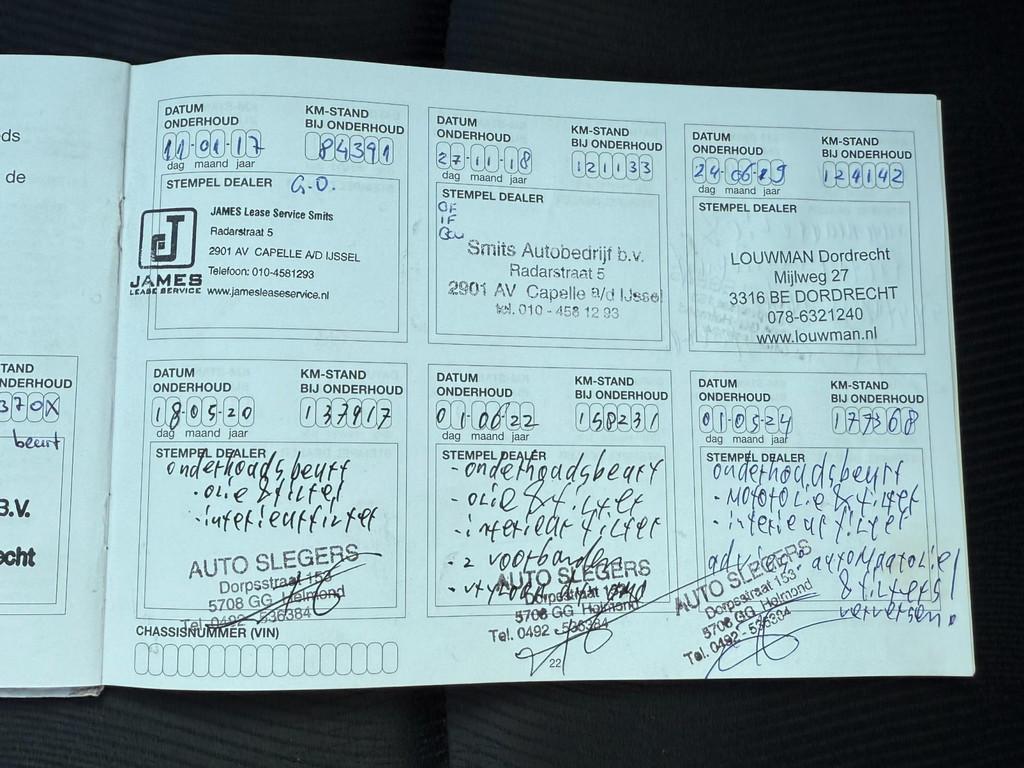 ds
de
TAND
NDERHOUD
370X
beurt
B.V.
echt
DATUM
ONDERHOUD
KM-STAND
BIJ ONDERHOUD
11-01-17
84391
dag maand jaar
STEMPEL DEALER G.O.
JAMES Lease Service Smits
Radarstraat 5
2901 AV CAPELLE A/D IJSSEL
Telefoon: 010-4581293
www.jamesleaseservice.nl
J
JAMES
LEASE SERVICE
DATUM
ONDERHOUD
KM-STAND
BIJ ONDERHOUD
27-11-18
121133
dag maand jaar
STEMPEL DEALER
OF
IF
Smits Autobedrijf b.v.
Radarstraat 5
2901 AV Capelle a/d IJssel
tel. 010 - 458 12 93
DATUM
ONDERHOUD
KM-STAND
BIJ ONDERHOUD
24-06-19
124142
dag maand jaar
STEMPEL DEALER
LOUWMAN Dordrecht
Mijlweg 27
3316 BE DORDRECHT
078-6321240
www.louwman.nl
DATUM
ONDERHOUD
KM-STAND
BIJ ONDERHOUD
18-05-20
137917
dag maand jaar
STEMPEL DEALER
onderhoudsbeurt
- olie & filter
- interieurfilter
AUTO SLEGERS
Dorpsstraat 153
5708 GG Helmond
Tel. 0492 - 536384
DATUM
ONDERHOUD
KM-STAND
BIJ ONDERHOUD
01-06-22
158231
dag maand jaar
STEMPEL DEALER
- onderhoudsbeurt
- olie & filter
- interieur filter
- 2 voorbanden
AUTO SLEGERS
Dorpsstraat 153
5708 GG Helmond
Tel. 0492 - 536384
DATUM
ONDERHOUD
KM-STAND
BIJ ONDERHOUD
01-05-24
177368
dag maand jaar
STEMPEL DEALER
onderhoudsbeurt
- Motorolie & filter
- interieur filter
advies: automaatolie
& filters
verversen.
AUTO SLEGERS
Dorpsstraat 153
5708 GG Helmond
Tel. 0492 - 536384
CHASSISNUMMER (VIN)
22